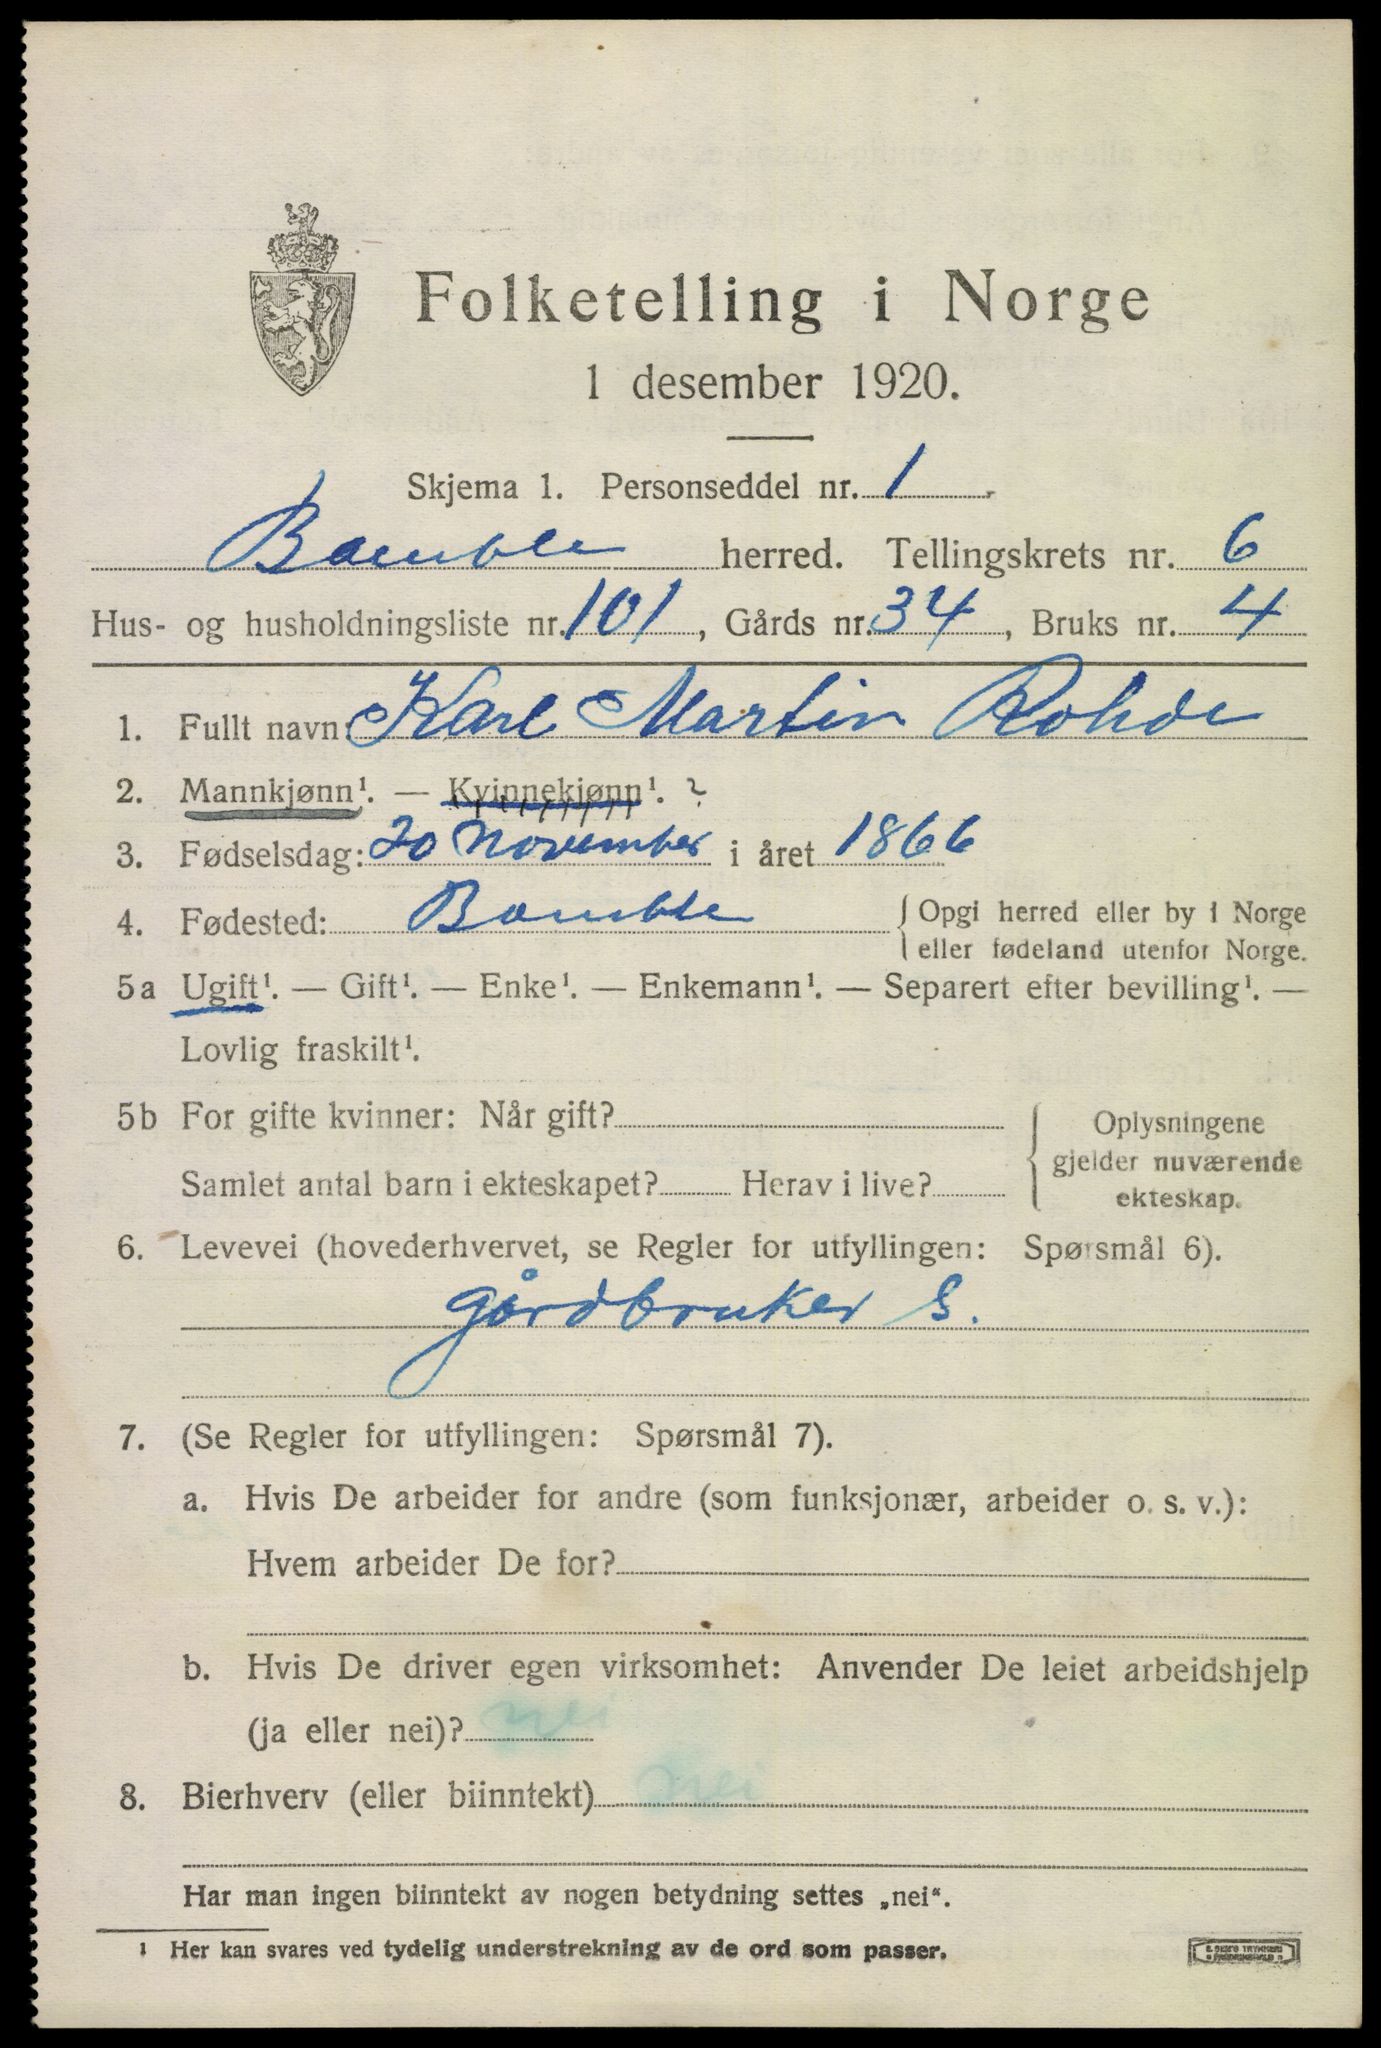 Folketelling i Norge
1 desember 1920.
Skjema 1. Personseddel nr. 1
Bamble herred. Tellingskrets nr. 6
Hus- og husholdningsliste nr. 101, Gårds nr. 34, Bruks nr. 4
1. Fullt navn: Karl Martin Rohde
2. Mannkjønn¹. — Kvinnekjønn¹. ?
3. Fødselsdag: 20 November i året 1866
4. Fødested: Bamble { Opgi herred eller by i Norge
eller fødeland utenfor Norge.
5a Ugift¹. — Gift¹. — Enke¹. — Enkemann¹. — Separert efter bevilling¹. —
Lovlig fraskilt¹.
5b For gifte kvinner: Når gift? { Oplysningene
gjelder nuværende
Samlet antal barn i ekteskapet? Herav i live? ekteskap.
6. Levevei (hovederhvervet, se Regler for utfyllingen: Spørsmål 6).
gårdbruker S.
7. (Se Regler for utfyllingen: Spørsmål 7).
a. Hvis De arbeider for andre (som funksjonær, arbeider o. s. v.):
Hvem arbeider De for?
b. Hvis De driver egen virksomhet: Anvender De leiet arbeidshjelp
(ja eller nei)? nei
8. Bierhverv (eller biinntekt) nei
Har man ingen biinntekt av nogen betydning settes „nei“.
¹ Her kan svares ved tydelig understrekning av de ord som passer.